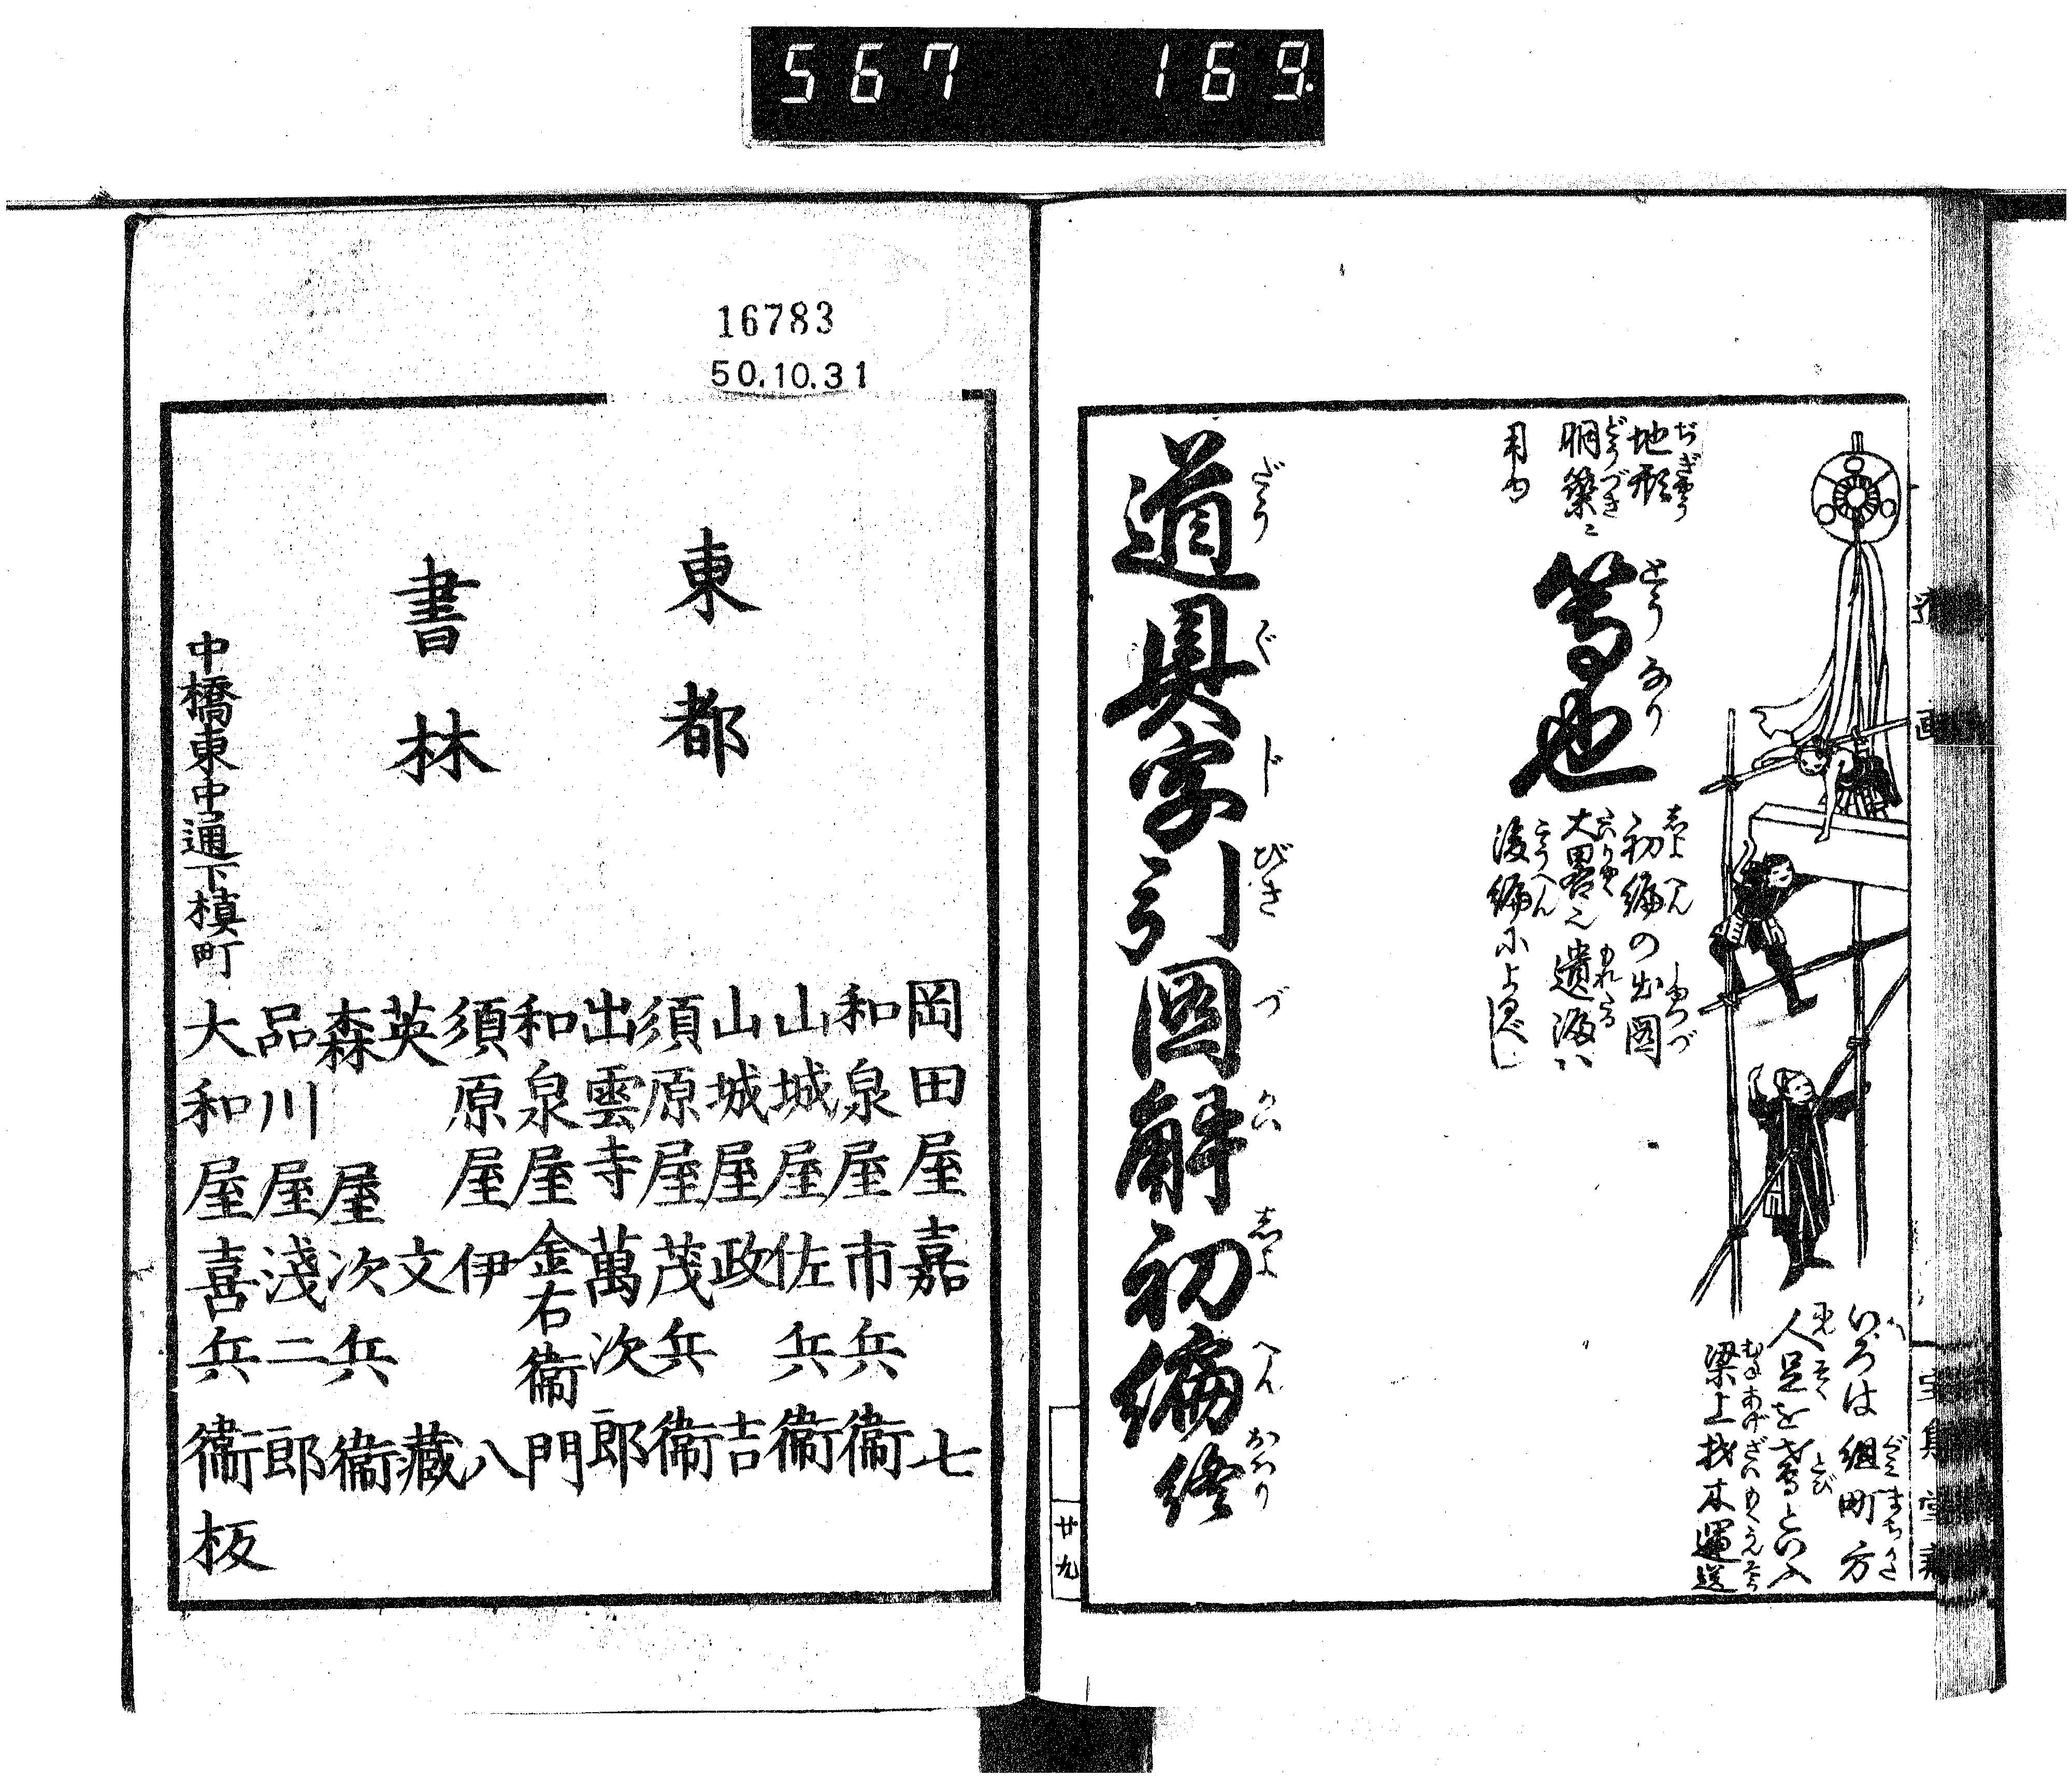 567 169.
いろは組町方
人足を鳶といふ
梁上材木運送
地形
胴築ニ
用ゆ
等也
初編の出図
大畧也遺漏ハ
後編によるべし
道具字引図解初編終
廿九
16783
50.10.31
東都
書林
岡田屋嘉七
和泉屋市兵衞
山城屋佐兵衞
山城屋政吉
須原屋茂兵衞
出雲寺萬次郎
和泉屋金右衞門
須原屋伊八
英文藏
森屋次兵衞
品川屋淺二郎
中橋東中通下槙町
大和屋喜兵衞板